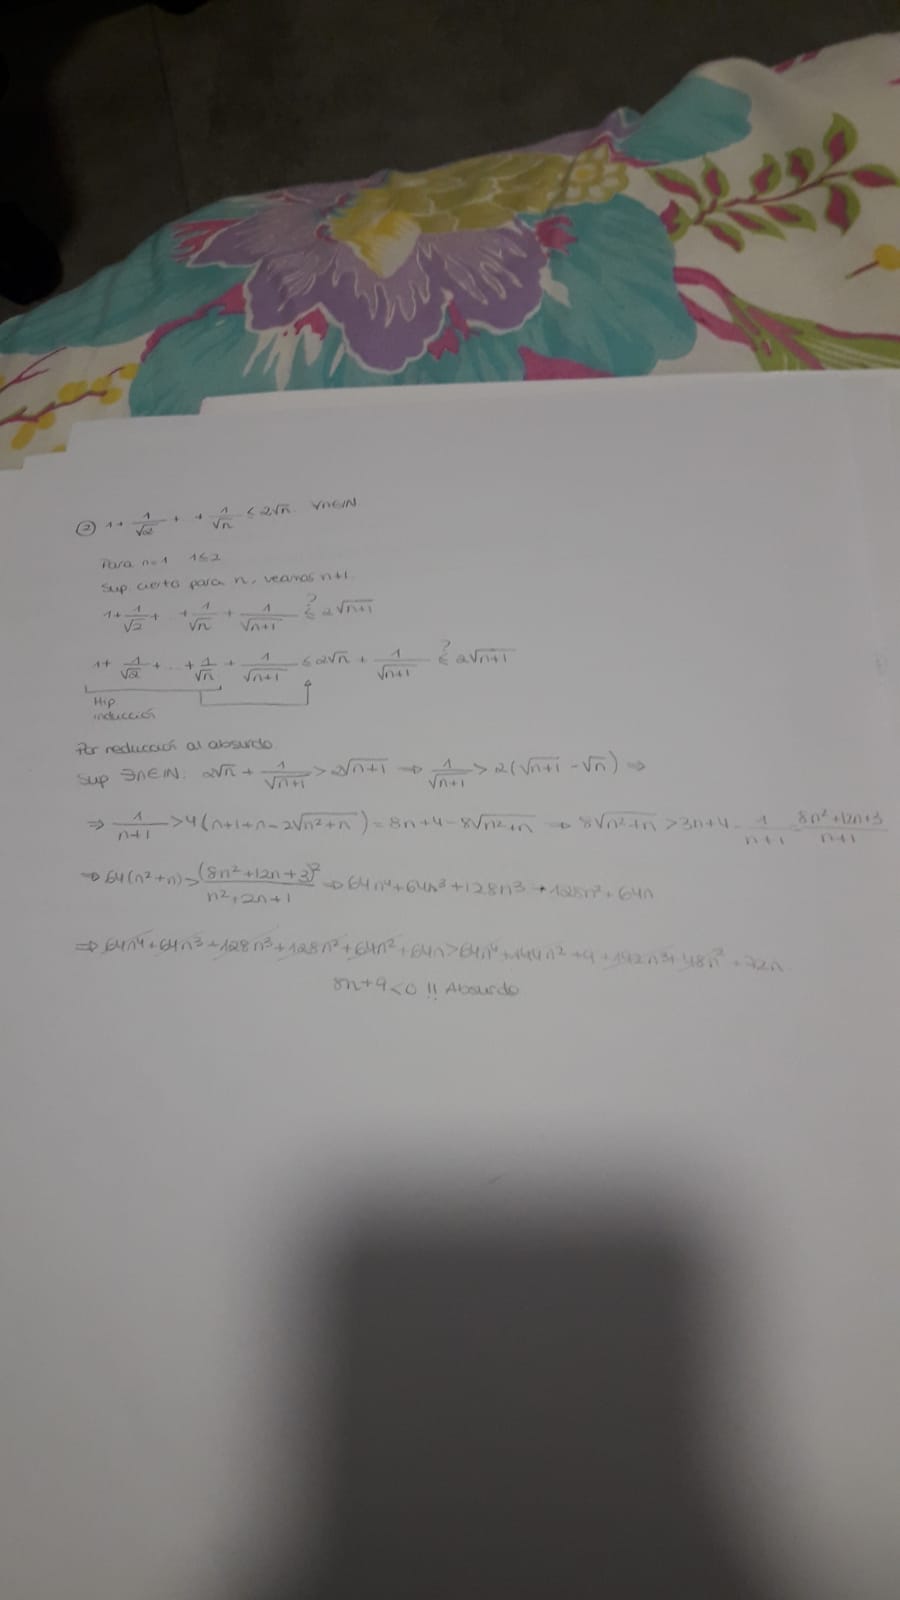 ② 1+ 1/√2 + + 1/√n ≤ 2√n. ∀n∈ℕ.
Para n=1 1≤2
Sup. cierto para n, veamos n+1.
1+ 1/√2 + . + 1/√n + 1/√n+1 ≤? 2√n+1
1+ 1/√2 + .. + 1/√n + 1/√n+1 ≤ 2√n + 1/√n+1 ≤? 2√n+1
Hip
inducción
Por reducción al absurdo.
Sup ∃n∈ℕ: 2√n + 1/√n+1 > 2√n+1 ⇒ 1/√n+1 > 2(√n+1 - √n) ⇒
⇒ 1/n+1 > 4(n+1+n-2√n²+n) = 8n+4-8√n²+n ⇒ 8√n²+n > 8n+4 - 1/n+1 = 8n²+12n+3/n+1
⇒ 64(n²+n) > (8n²+12n+3)²/n²+2n+1 ⇒ 64n⁴+64n³+128n³+128n²+64n
⇒ 64n⁴+64n³+128n³+128n²+64n²+64n > 64n⁴+144n²+9+192n³+48n²+72n
8n+9<0 !! Absurdo